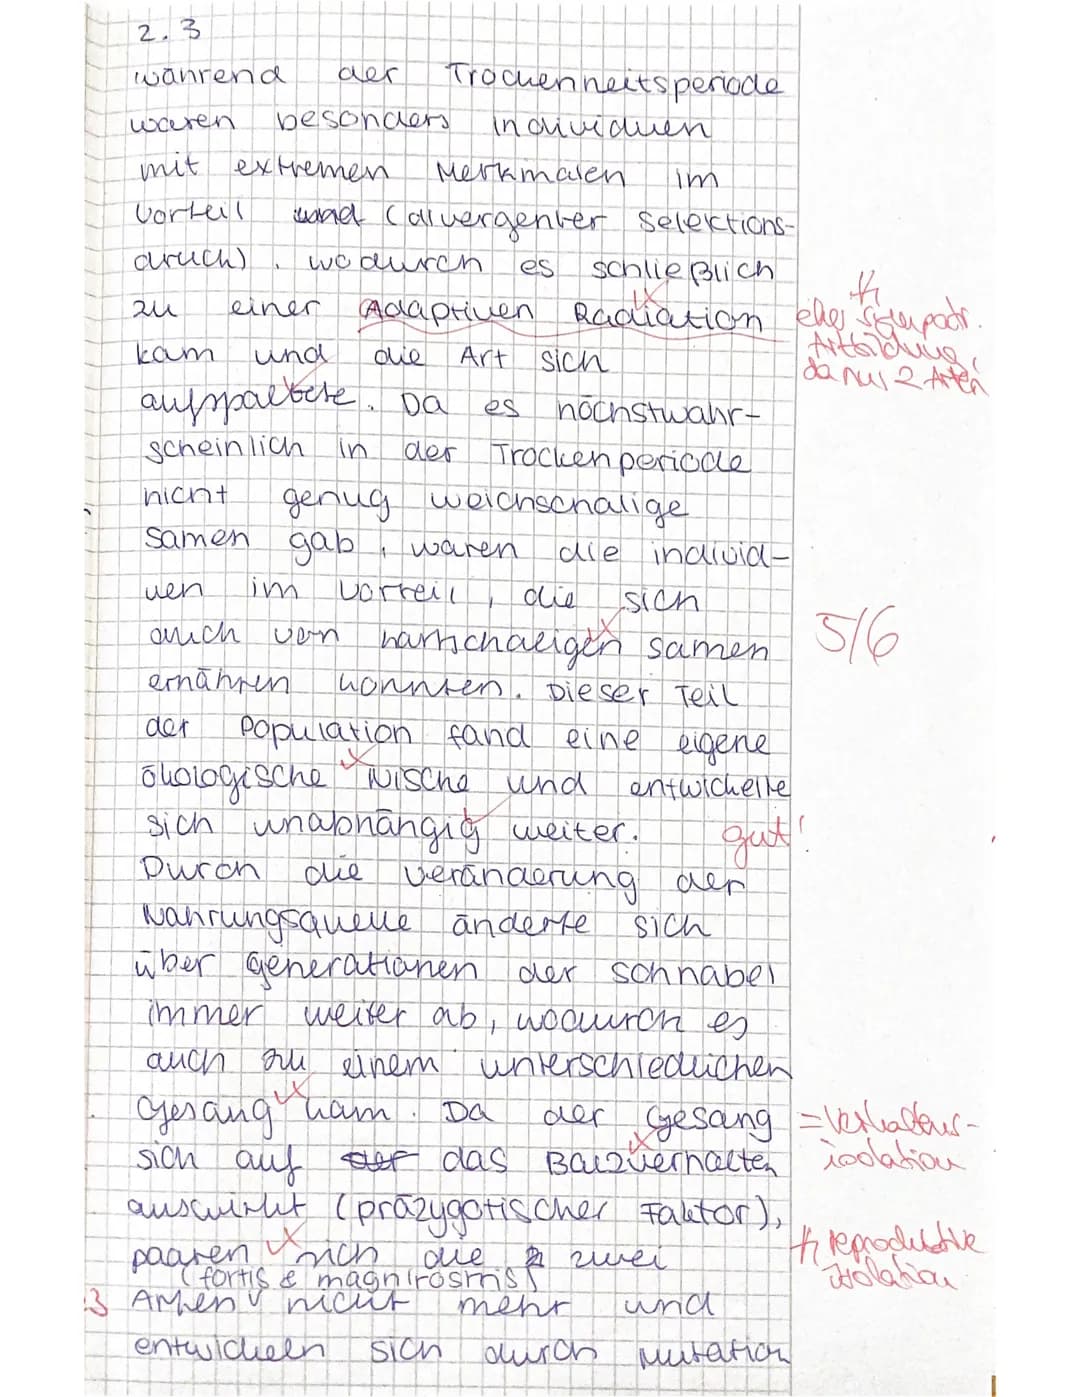 2.3
während der Trockenheitsperiode
waren besonders Individuen
mit extremen Merkmalen im
Vorteil und (divergenter Selektions-
druck), wodurch es schließlich
zu einer Adaptiven Radiation
eher sympatr.
Artbildung,
da nur 2 Arten
kam und die Art sich
aufspaltete. Da es höchstwahr-
scheinlich in der Trockenperiode
nicht genug weichschalige
Samen gab, waren die individ-
uen im Vorteil, die sich
auch von hartschaligen Samen
5/6
ernähren konnten. Dieser Teil
der Population fand eine eigene
ökologische Nische und entwickelte
sich unabhängig weiter.
gut!
Durch die Veränderung der
Nahrungsquelle änderte sich
über Generationen der Schnabel
immer weiter ab, wodurch es
auch zu einem unterschiedlichen
Gesang kam. Da der Gesang
= Verhaltens-
isolation
sich auf das Balzverhalten
auswirkt (präzygotischer Faktor),
paaren sich die 2 zwei
reproduktive
Isolation
(fortis & magnirosrris)
:3 Arten nicht mehr und
entwickeln sich durch Mutation